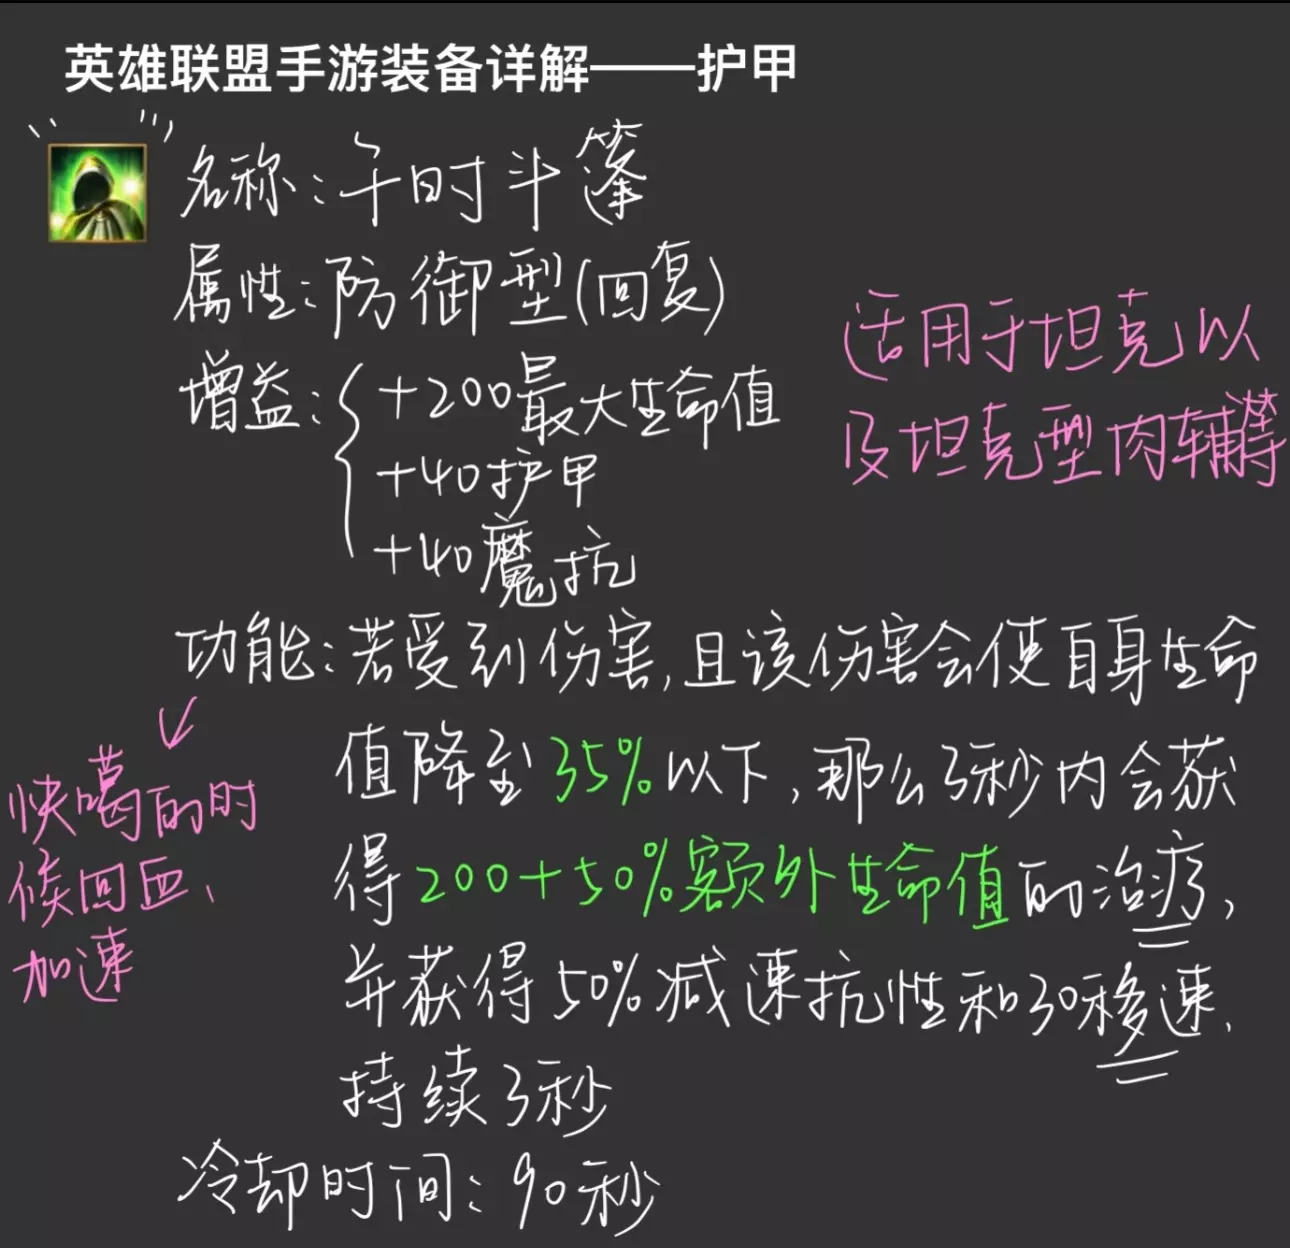 英雄联盟手游装备详解——护甲
名称:午时斗篷
属性:防御型(回复)
适用于坦克以
及坦克型肉辅等
增益:{+200最大生命值
+40护甲
+40魔抗
功能:若受到伤害,且该伤害会使自身生命
值降至35%以下,那么3秒内会获
得200+50%额外生命值的治疗,
并获得50%减速抗性和30移速,
持续3秒
快噶的时
候回血、
加速
冷却时间:90秒